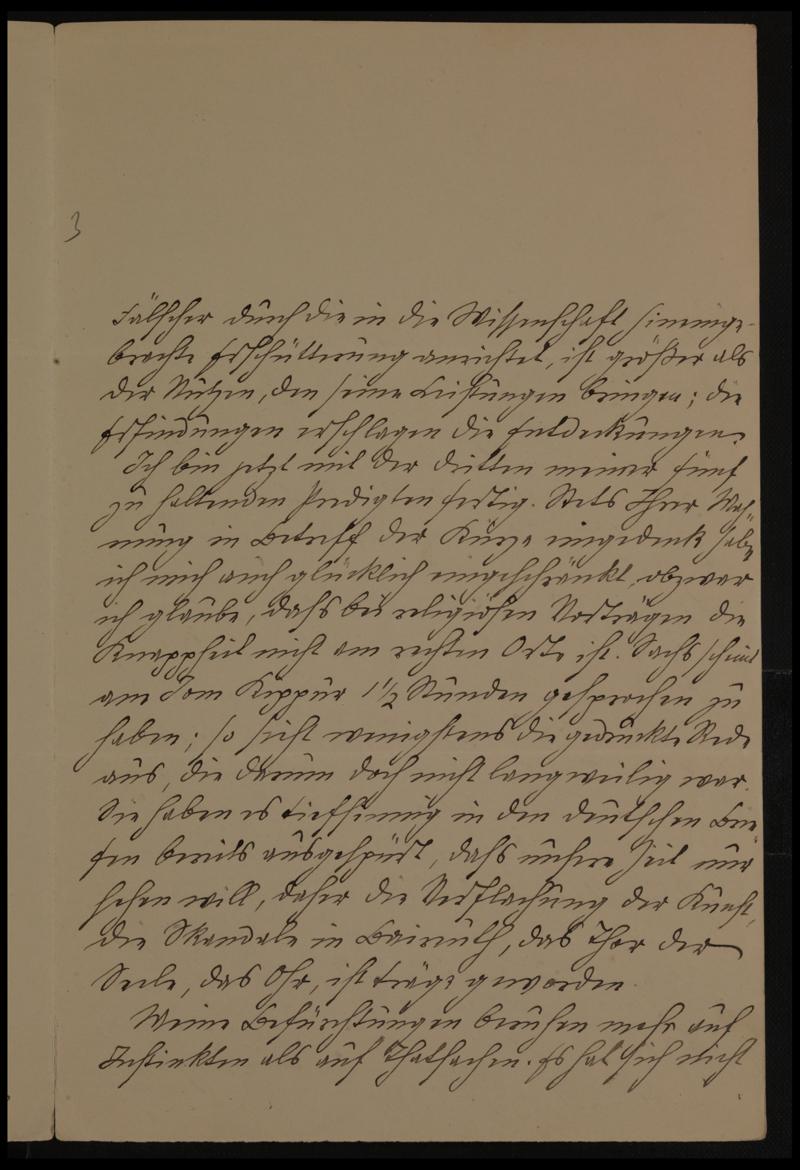 3
Fälscher durch die in die Wissenschaft hineinge-
brachte Erschütterung anrichtet, ist größer als
der Nutzen, den seine Leistungen bringen; die
Erfindungen erschlagen die Entdeckungen.
Ich bin jetzt mit der dritten meiner fünf
zu haltenden Predigten fertig. Stets Ihrer Mah-
nung in Betreff der Kürze eingedenk habe
ich mich auch glücklich eingeschränkt, obzwar
ich glaube, dass bei religiösen Vorträgen die
Knappheit nicht am rechten Orte ist. Sachs scheint
am Jom Kippur 1 1/2 Stunden gesprochen zu
haben; so sieht wenigstens die gedruckte Rede
aus, die darum doch nicht langweilig war.
Sie haben es tiefsinnig in den deutschen Brie-
fen bereits ausgespürt, dass unsere Zeit nur
sehen will, daher die Verflachung der Kunst,
die Skandale in Baireuth, das Thor der
Seele, das Ohr, ist träge geworden.
Meine Befürchtungen beruhen mehr auf
Instinkten als auf Thatsachen. Es hat sich nicht